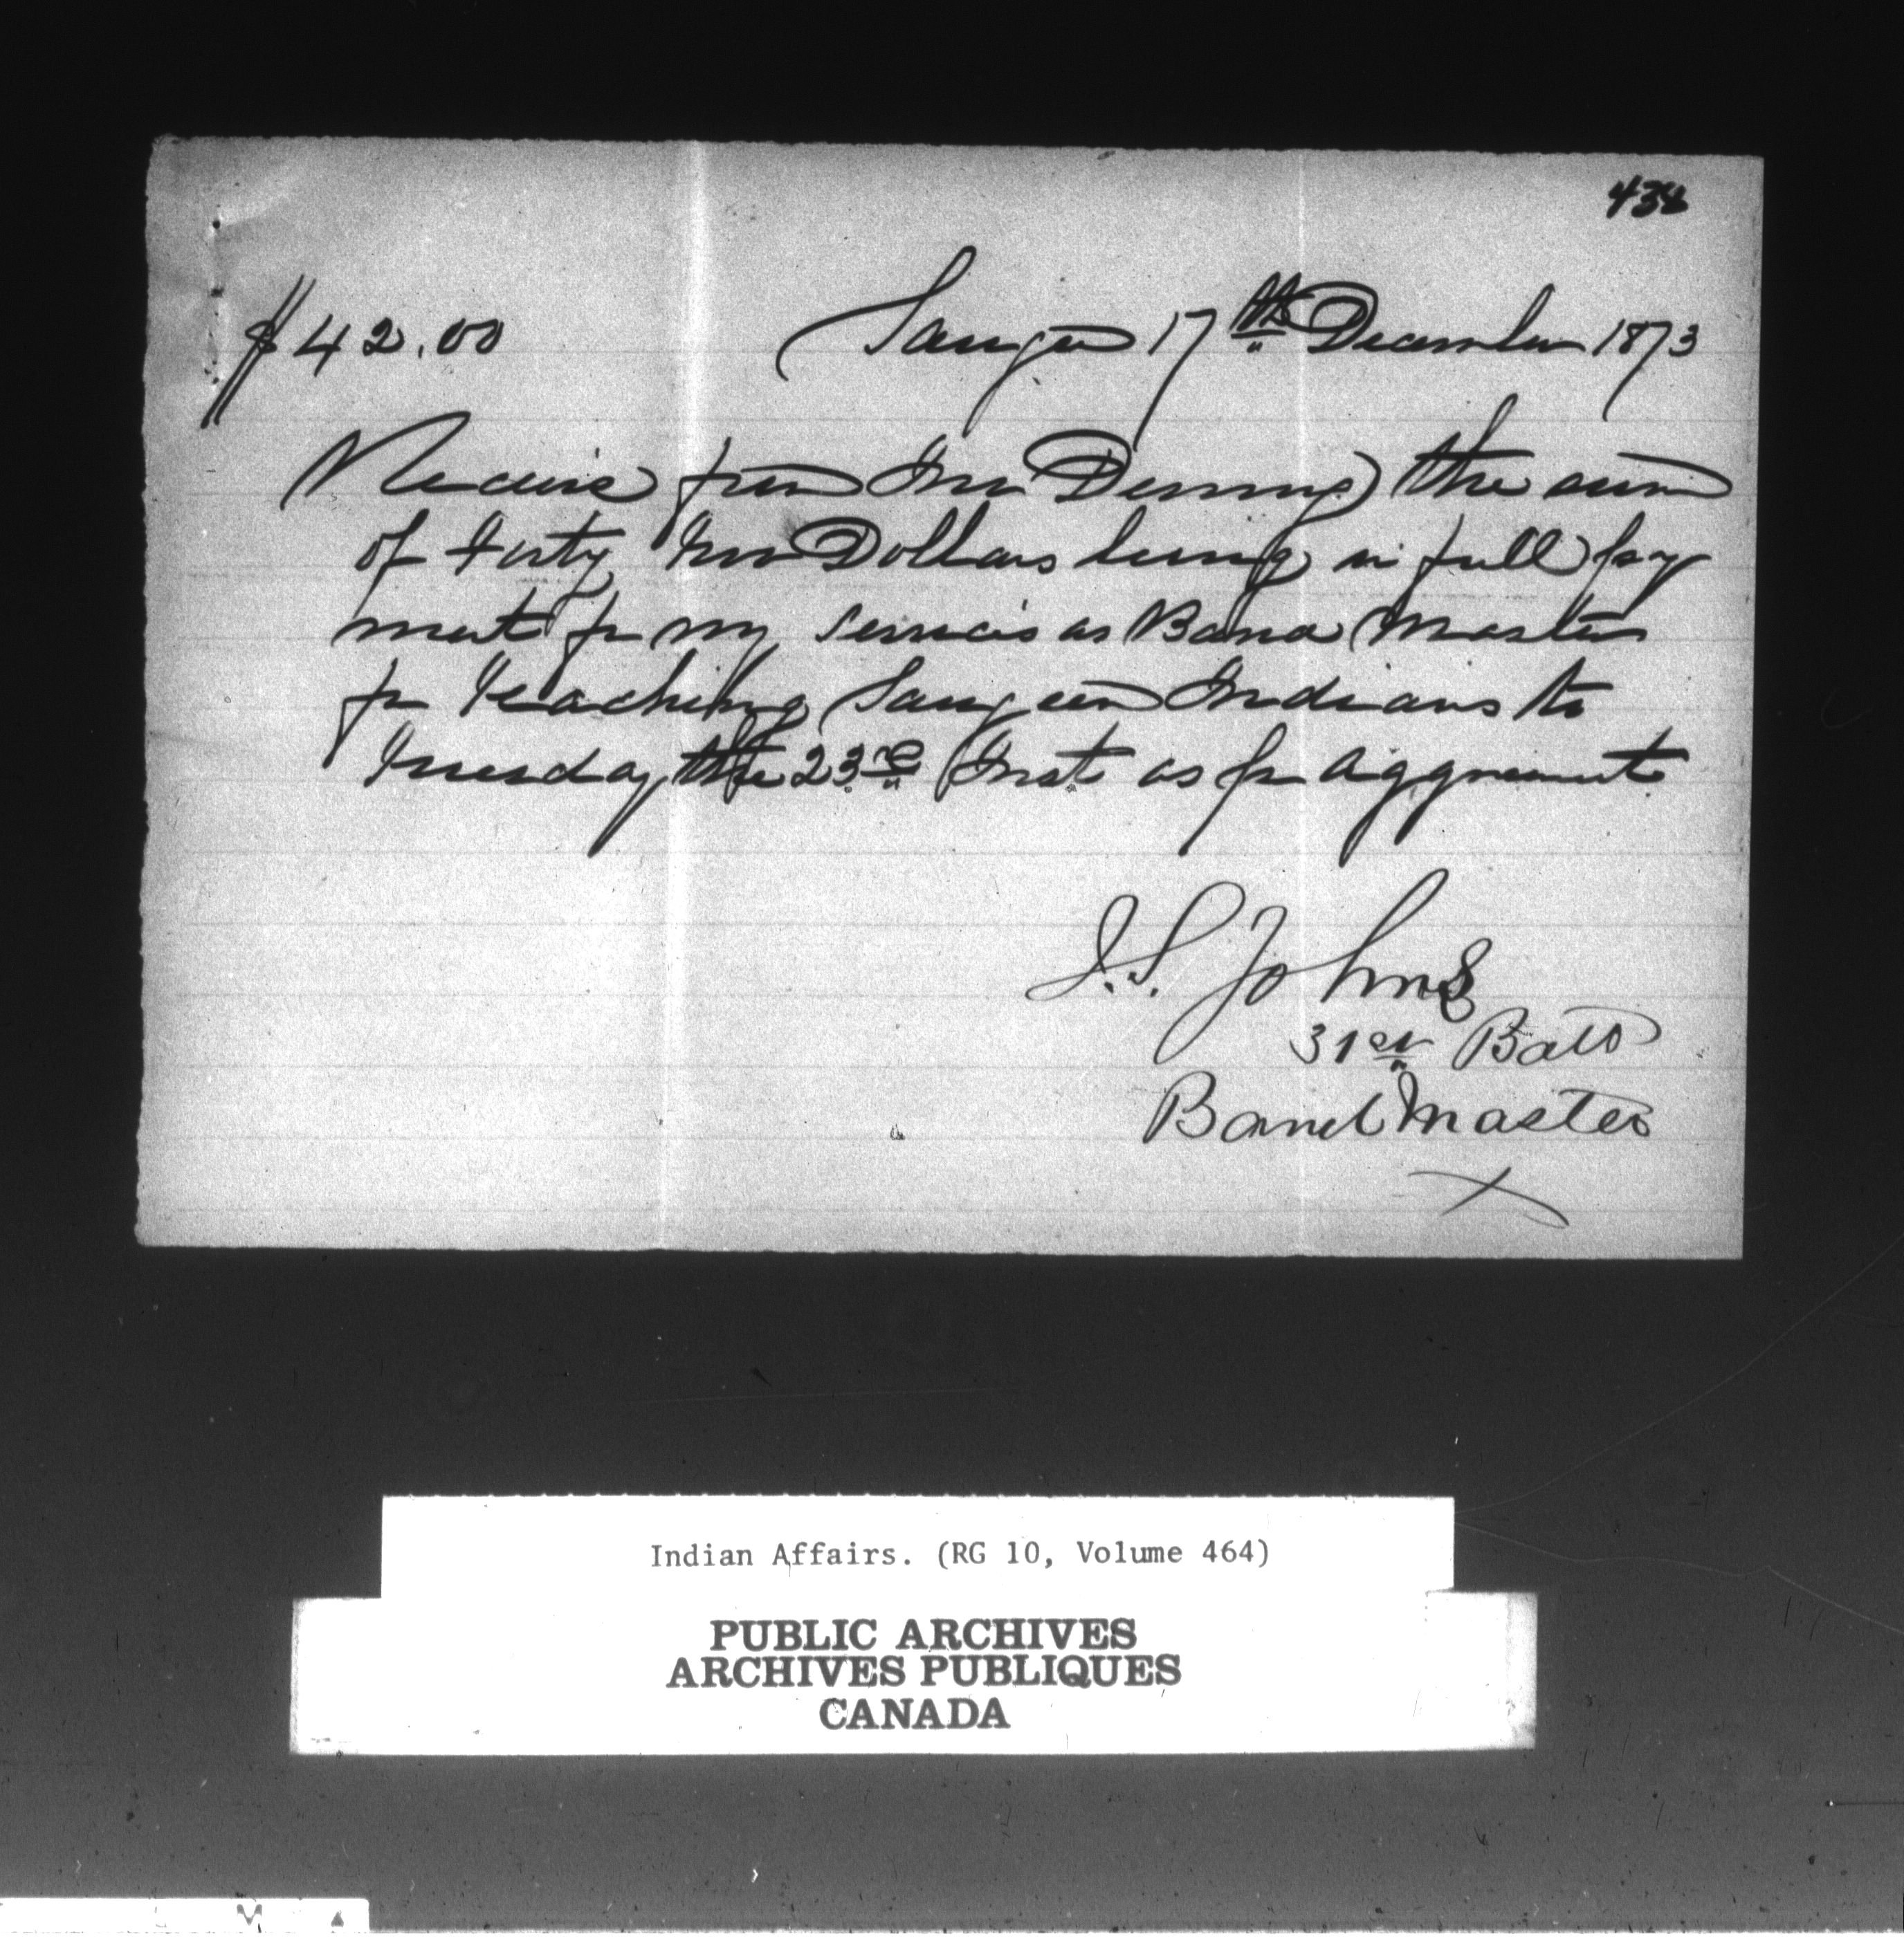 438
$42.00 Saugeen 17th December 1873
Receive from Mr the sum
of Forty two Dollars being in full pay
ment for my services as Band Master
for Teaching Saugeen Indians to
Tuesday the 23rd Inst as per Aggreement
J.S. Johns
31st Batt
Band Master
Indian Affairs. (RG 10, Volume 464)
PUBLIC ARCHIVES
ARCHIVES PUBLIQUES
CANADA